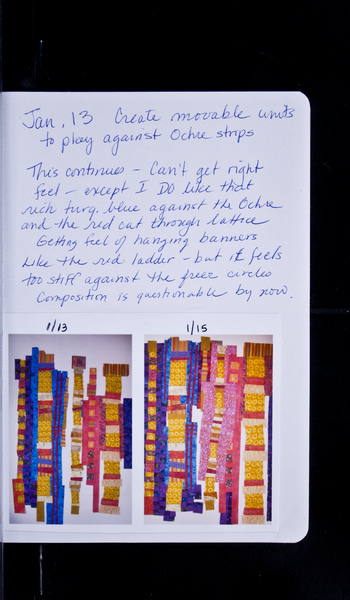 Jan, 13 Create movable units
to play against Ochre strips
This continues - Can't get right
feel - except I DO like that
rich turq. blue against the Ochre
and the red cut through lattice
Getting feel of hanging banners
Like the red ladder - but it feels
too stiff against the freer circles
Composition is questionable by now.
1/13 1/15